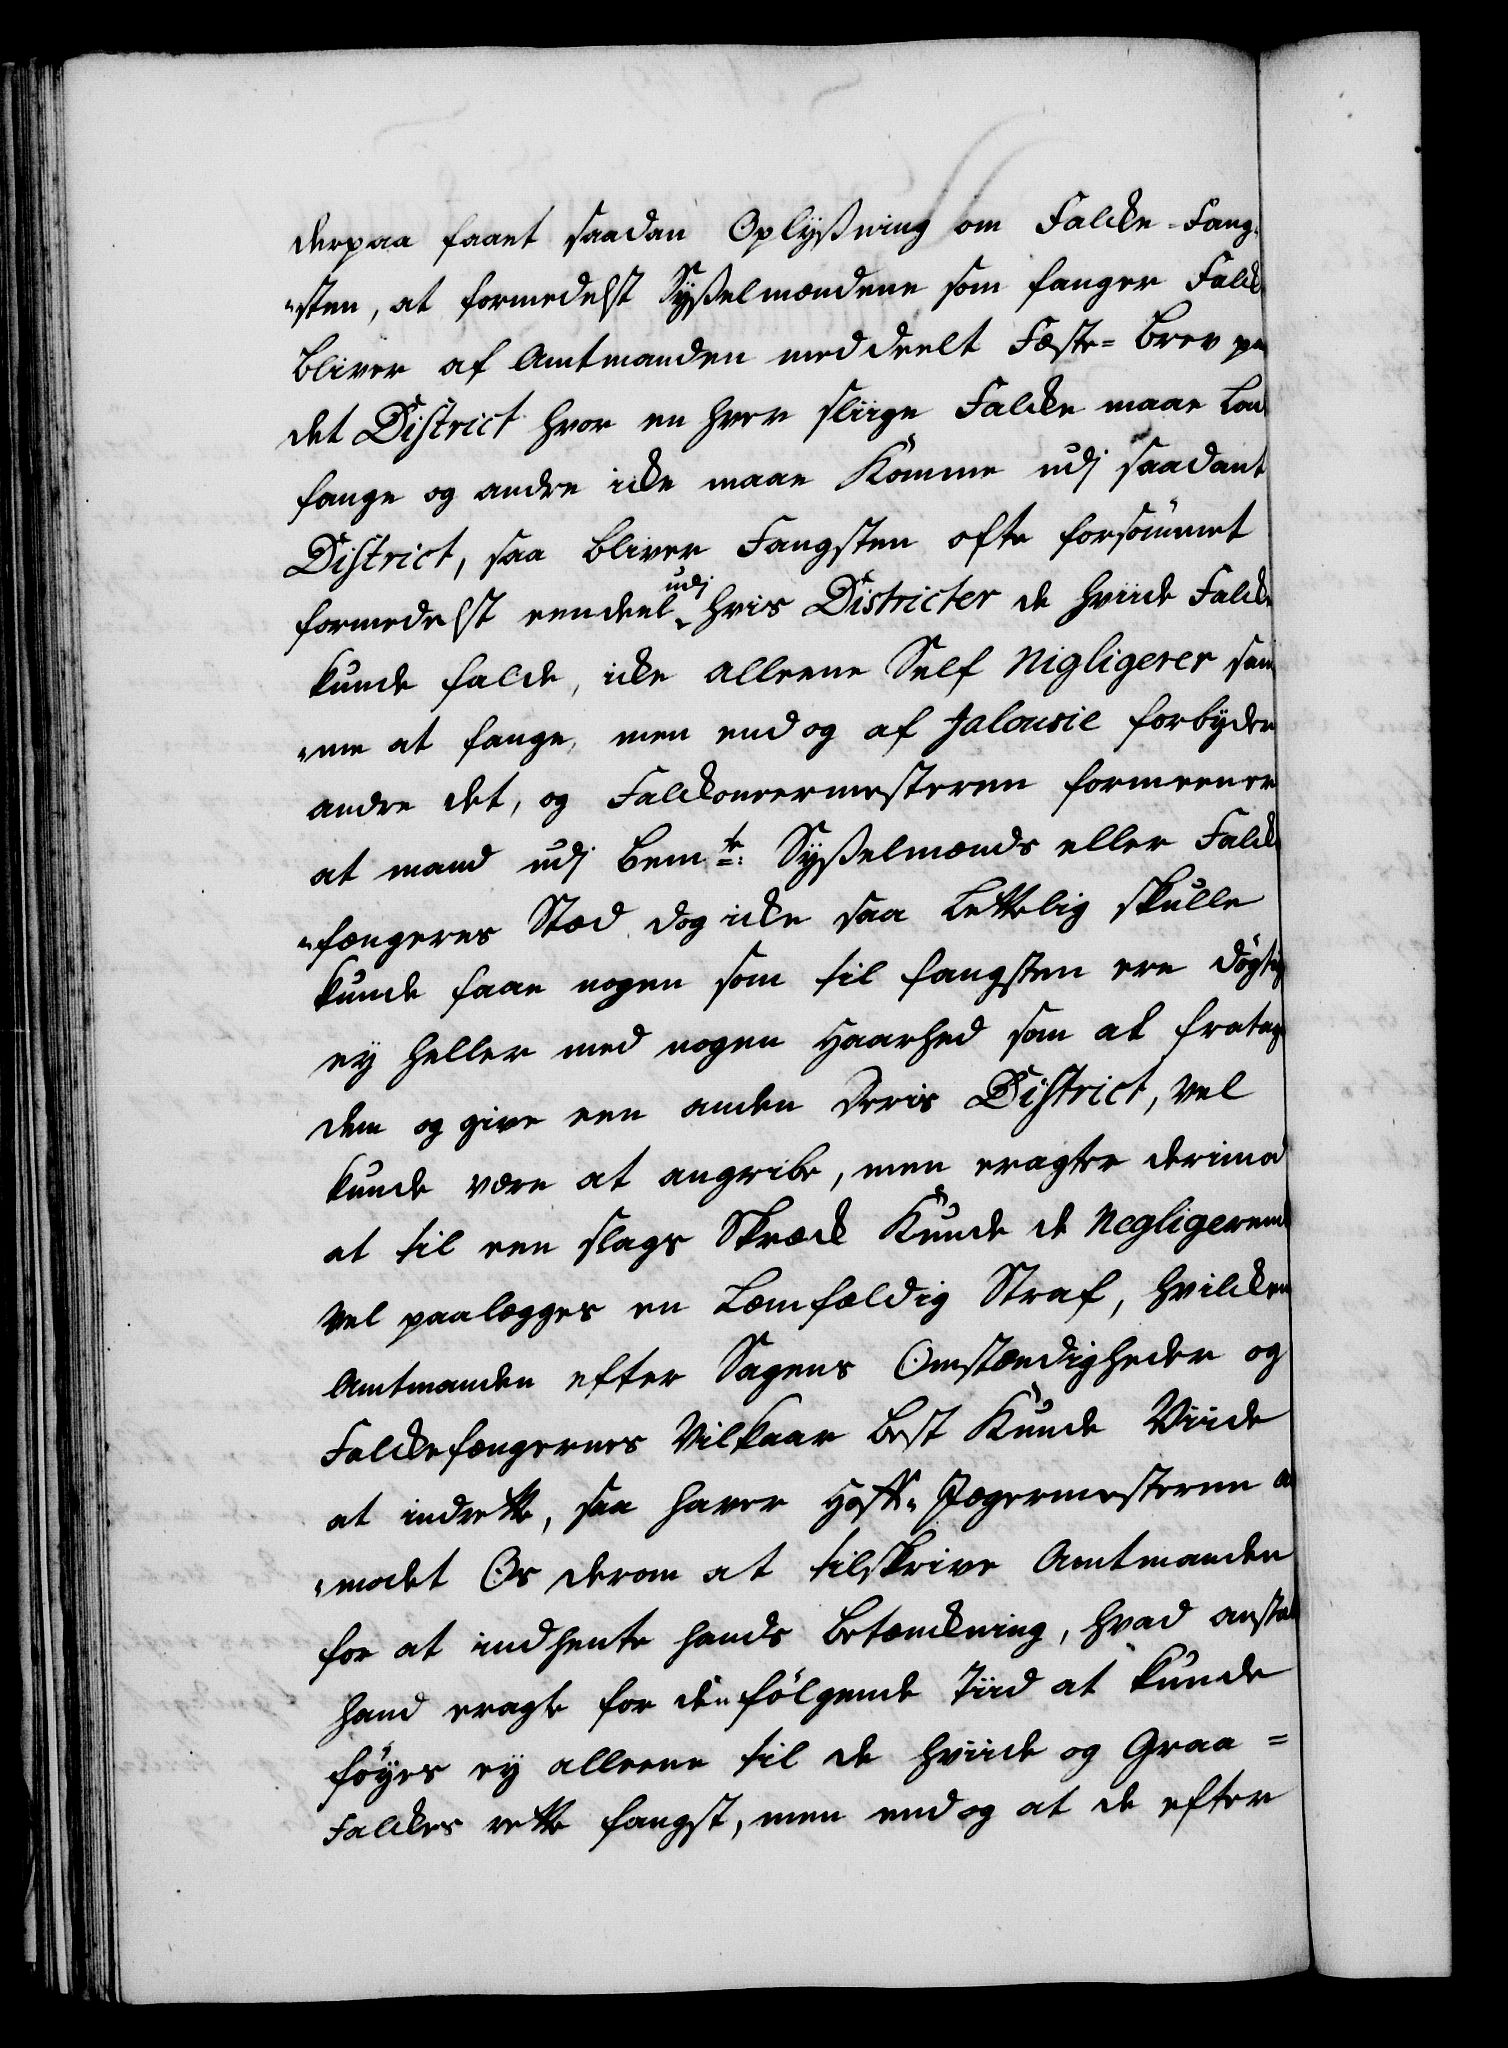 derpaa faaet saadan Oplyßning om Falcke-Fang-
"sten, at formedelst Syßelmændene som fanger Falck
bliver af Amtmanden meddeelt Fæste-Brev paa
det District hvor en hver sliige Falcke maae lade
fange og andre icke maae Komme udj saadant
District, saa bliver Fangsten ofte forsømmet
formedelst eendeel udj hvis Districter de hviide Falcke
kunde falde, icke alleene Self Nigligerer sam
"me at fange, men end og af Jalousie forbyder
andre det, og Falckoneermesteren formeener
at mand udj bemte: Syßelmænds eller Falcke
"fængeres Stæd dog icke saa lettelig skulle
kunde faae nogen som til fangsten ere døgtig
ey heller med nogen Haarhed som at fratage
dem og give een anden deris District, vel
kunde være at angribe, men eragter derimod
at til een slags Skræck Kunde de Negligerende
vel paalægges en Læmfældig Straf, hvilcken
Amtmanden efter Sagens Omstændigheder og
Falckefængernes Vilkaar best Kunde Viide
at indrette, saa haver Hoff-Jægermesteren an
"modet Os derom at tilskrive Amtmanden
for at indhente hands Betænckning, hvad anstalt
hand eragte for den følgende Tiid at kunde
føyes ey alleene til de hviide og Graa-
Falckes rette fangst, men end og at de efter